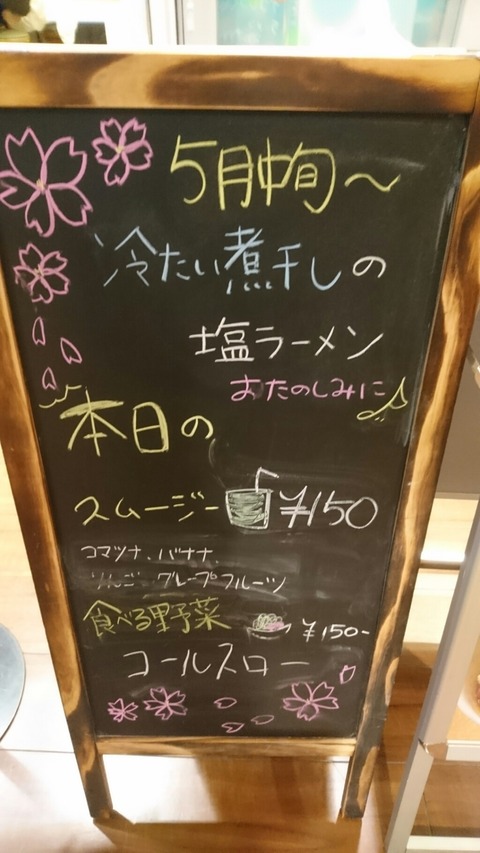 5月中旬〜
冷たい煮干しの
塩ラーメン
おたのしみに♪
本日の
スムージー ¥150
コマツナ、バナナ、
りんご グレープフルーツ
食べる野菜 ¥150-
コールスロー